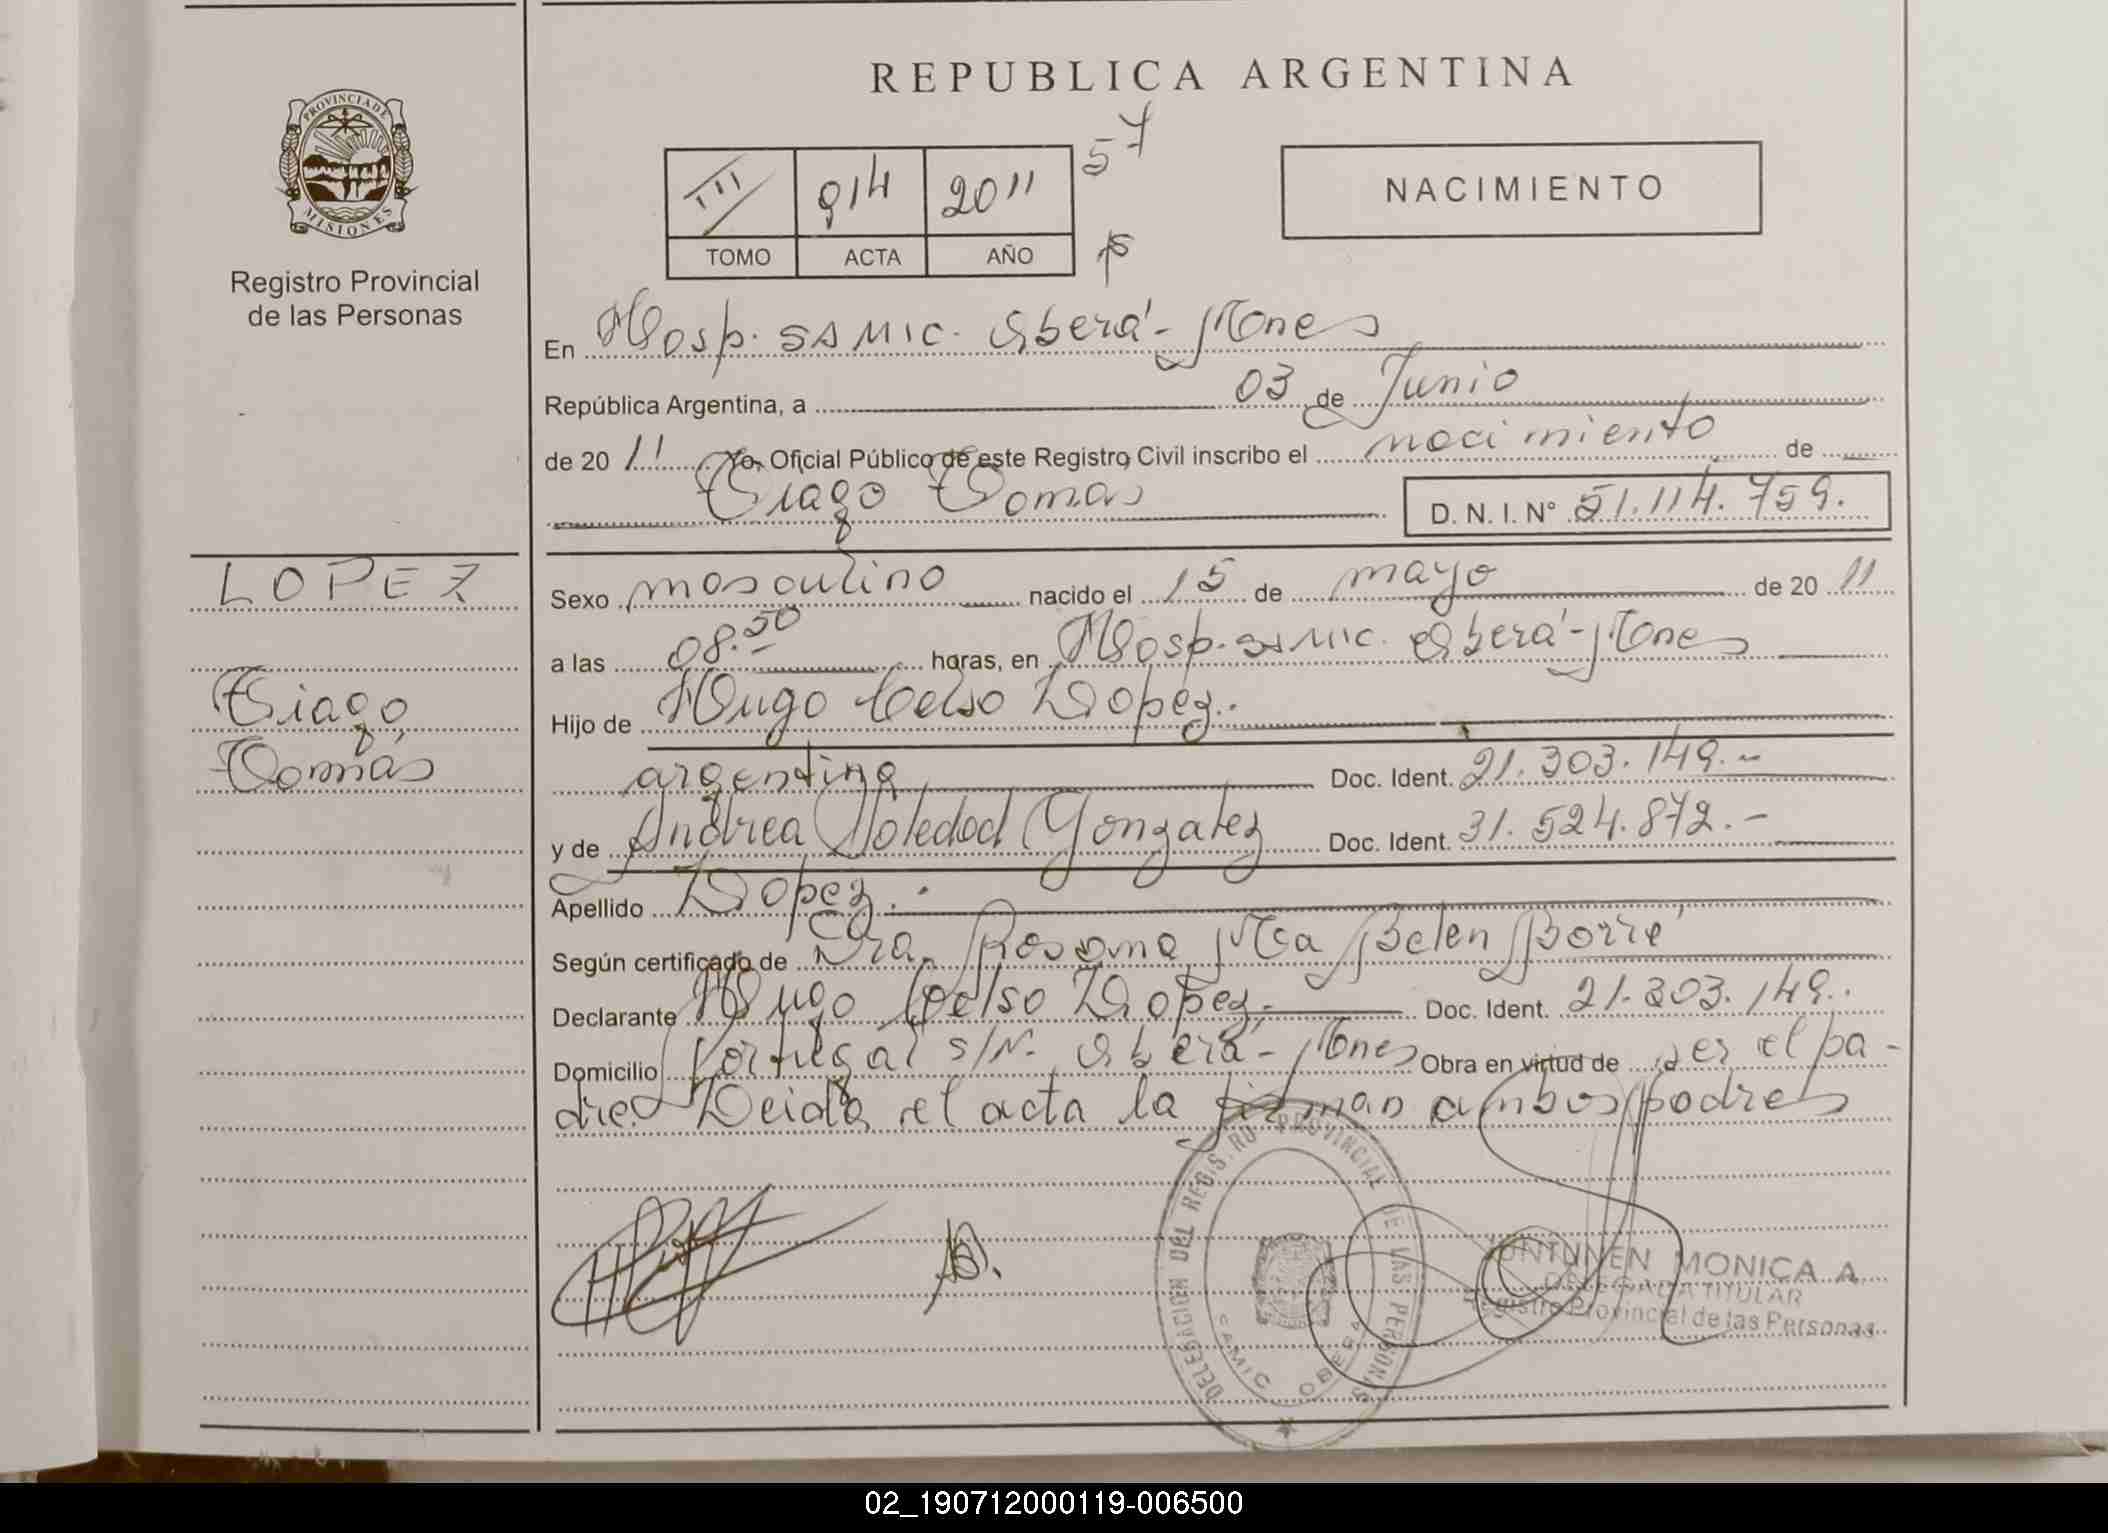 REPUBLICA ARGENTINA
PROVINCIA DE
MISIONES
Registro Provincial
de las Personas
57
III 914 2011
TOMO ACTA AÑO
NACIMIENTO
En Hosp. SAMIC. Oberá - Mnes
República Argentina, a 03 de Junio
de 20 11 Yo, Oficial Público de este Registro Civil inscribo el nacimiento de
Tiago Tomás
D. N. I. N° 51.114.759.
LOPEZ
Tiago
Tomás
Sexo masculino nacido el 15 de mayo de 20 11
a las 08.50 horas, en Hosp. SAMIC. Oberá - Mnes
Hijo de Hugo Celso Lopez.
argentina Doc. Ident. 21.303.149.-
y de Andrea Soledad Gonzalez Doc. Ident. 31.524.872.-
Apellido Lopez.
Según certificado de Dra. Rosana Ma Belen Borré
Declarante Hugo Celso Lopez. Doc. Ident. 21.303.149.
Domicilio Portugal S/N. Oberá - Mnes Obra en virtud de ser el pa-
dre. Leida el acta la firman ambos padres
DELEGACION DEL REGISTRO PROVINCIAL DE LAS PERSONAS
SAMIC OBERA
MONICA A.
DELEGADA TITULAR
Registro Provincial de las Personas
02_190712000119-006500